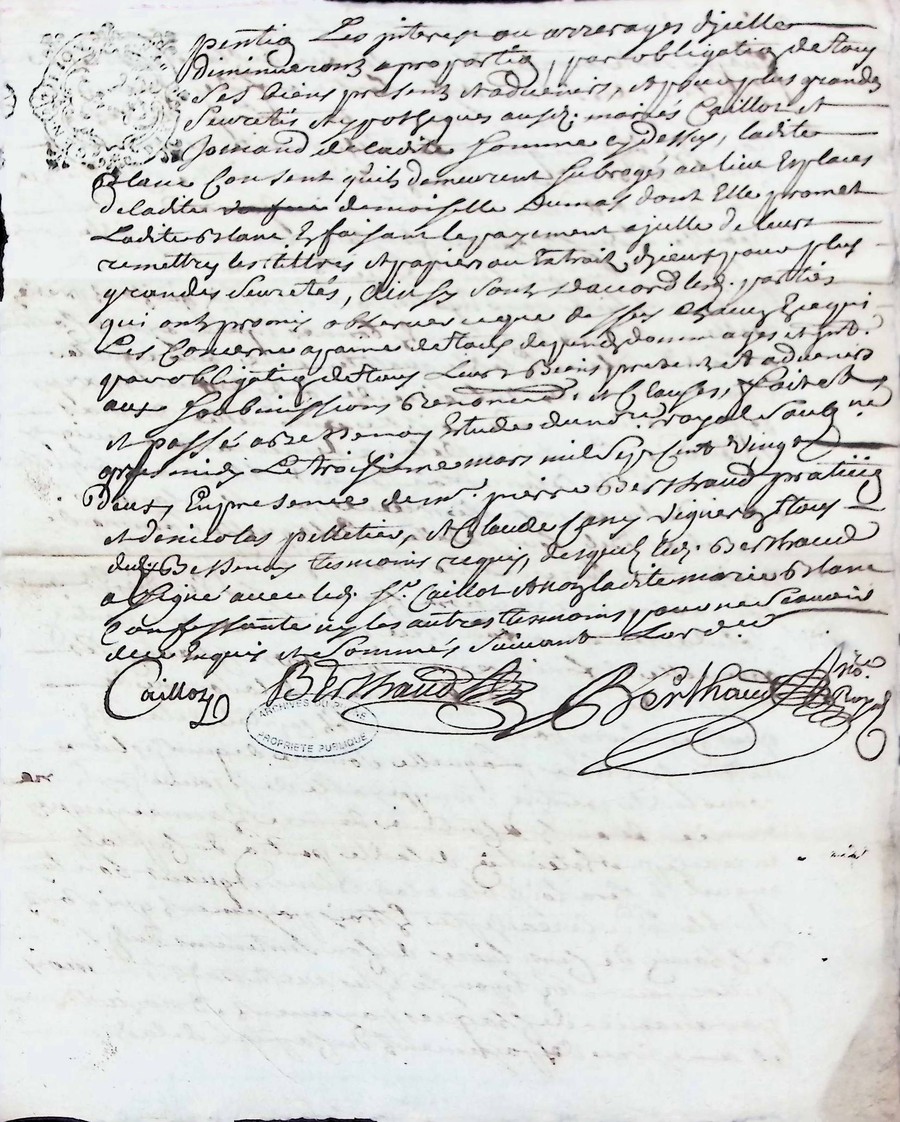 pention Les interest ou arrerages dicelle
diminueront a proportion, par obligation de tous
ses biens present et advenirs, et pour plus grandes
seuretés et ypotheques ausd. mariés Caillot et
de ladite somme cy dessus, ladite
Blanc Consent quils demeurent subrogés au lieu et places
de ladite demoiselle Dumas dont Elle promet
Ladite Blanc En faisant le payement dicelle de leurs
remettre les tittres et papiers ou Extrait diceux pour plus
grandes seuretés, ainsy sont daccord lesd. parties
qui ont promis observer ce que dessus chacun En ce qui
Les Concerne a paine de tous depend dommages et int.
par obligation de tous Leurs Biens present et advenirs
aux soubmissions Renonciat. et Clauses, fait et
et passé a Bessenay Etude du no.re royal soubs.né
apres midy Le troisieme mars mil sept Cent vingt
Deux En presence de m.e pierre Berthaud praticien
et de nicolas pelletier, et Claude vignerons tous
dud. Bessenay tesmoins requis, desquels led. Berthaud
a signé avec led. s.r Caillot et non ladite marie Blanc
Confessante ny les autres tesmoins, pour ne scavoir
de ce Enquis et sommés suivant Lord.ce
Caillot Berthaud Berthaud no.re Royal
ARCHIVES DU
PROPRIÉTÉ PUBLIQUE